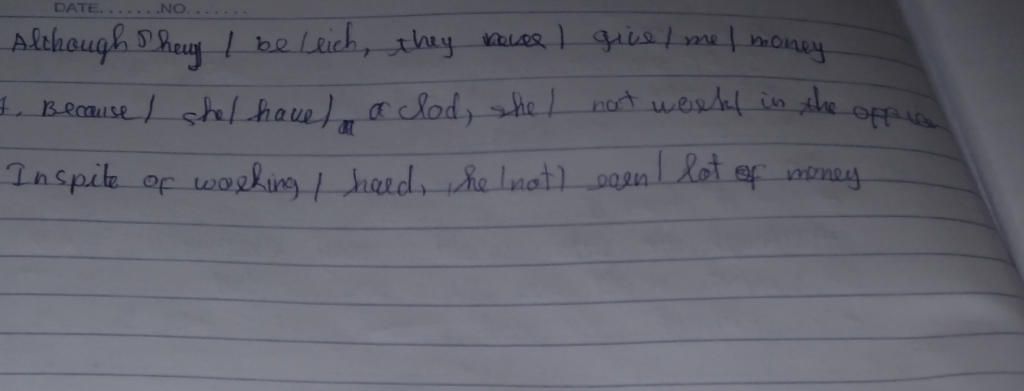 DATE.......NO.......
Although They / be / rich, they never / give / me / money
1. Because / she / have / a clod, she / not work / in the office
Inspite of working / hard, he (not) earn / lot of money